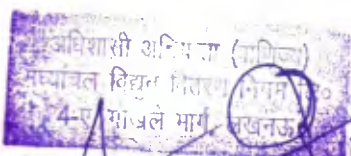 अधिशासी अभियन्ता (वाणिज्य)
मध्यांचल विद्युत वितरण निगम लि०
4-ए गोखले मार्ग, लखनऊ